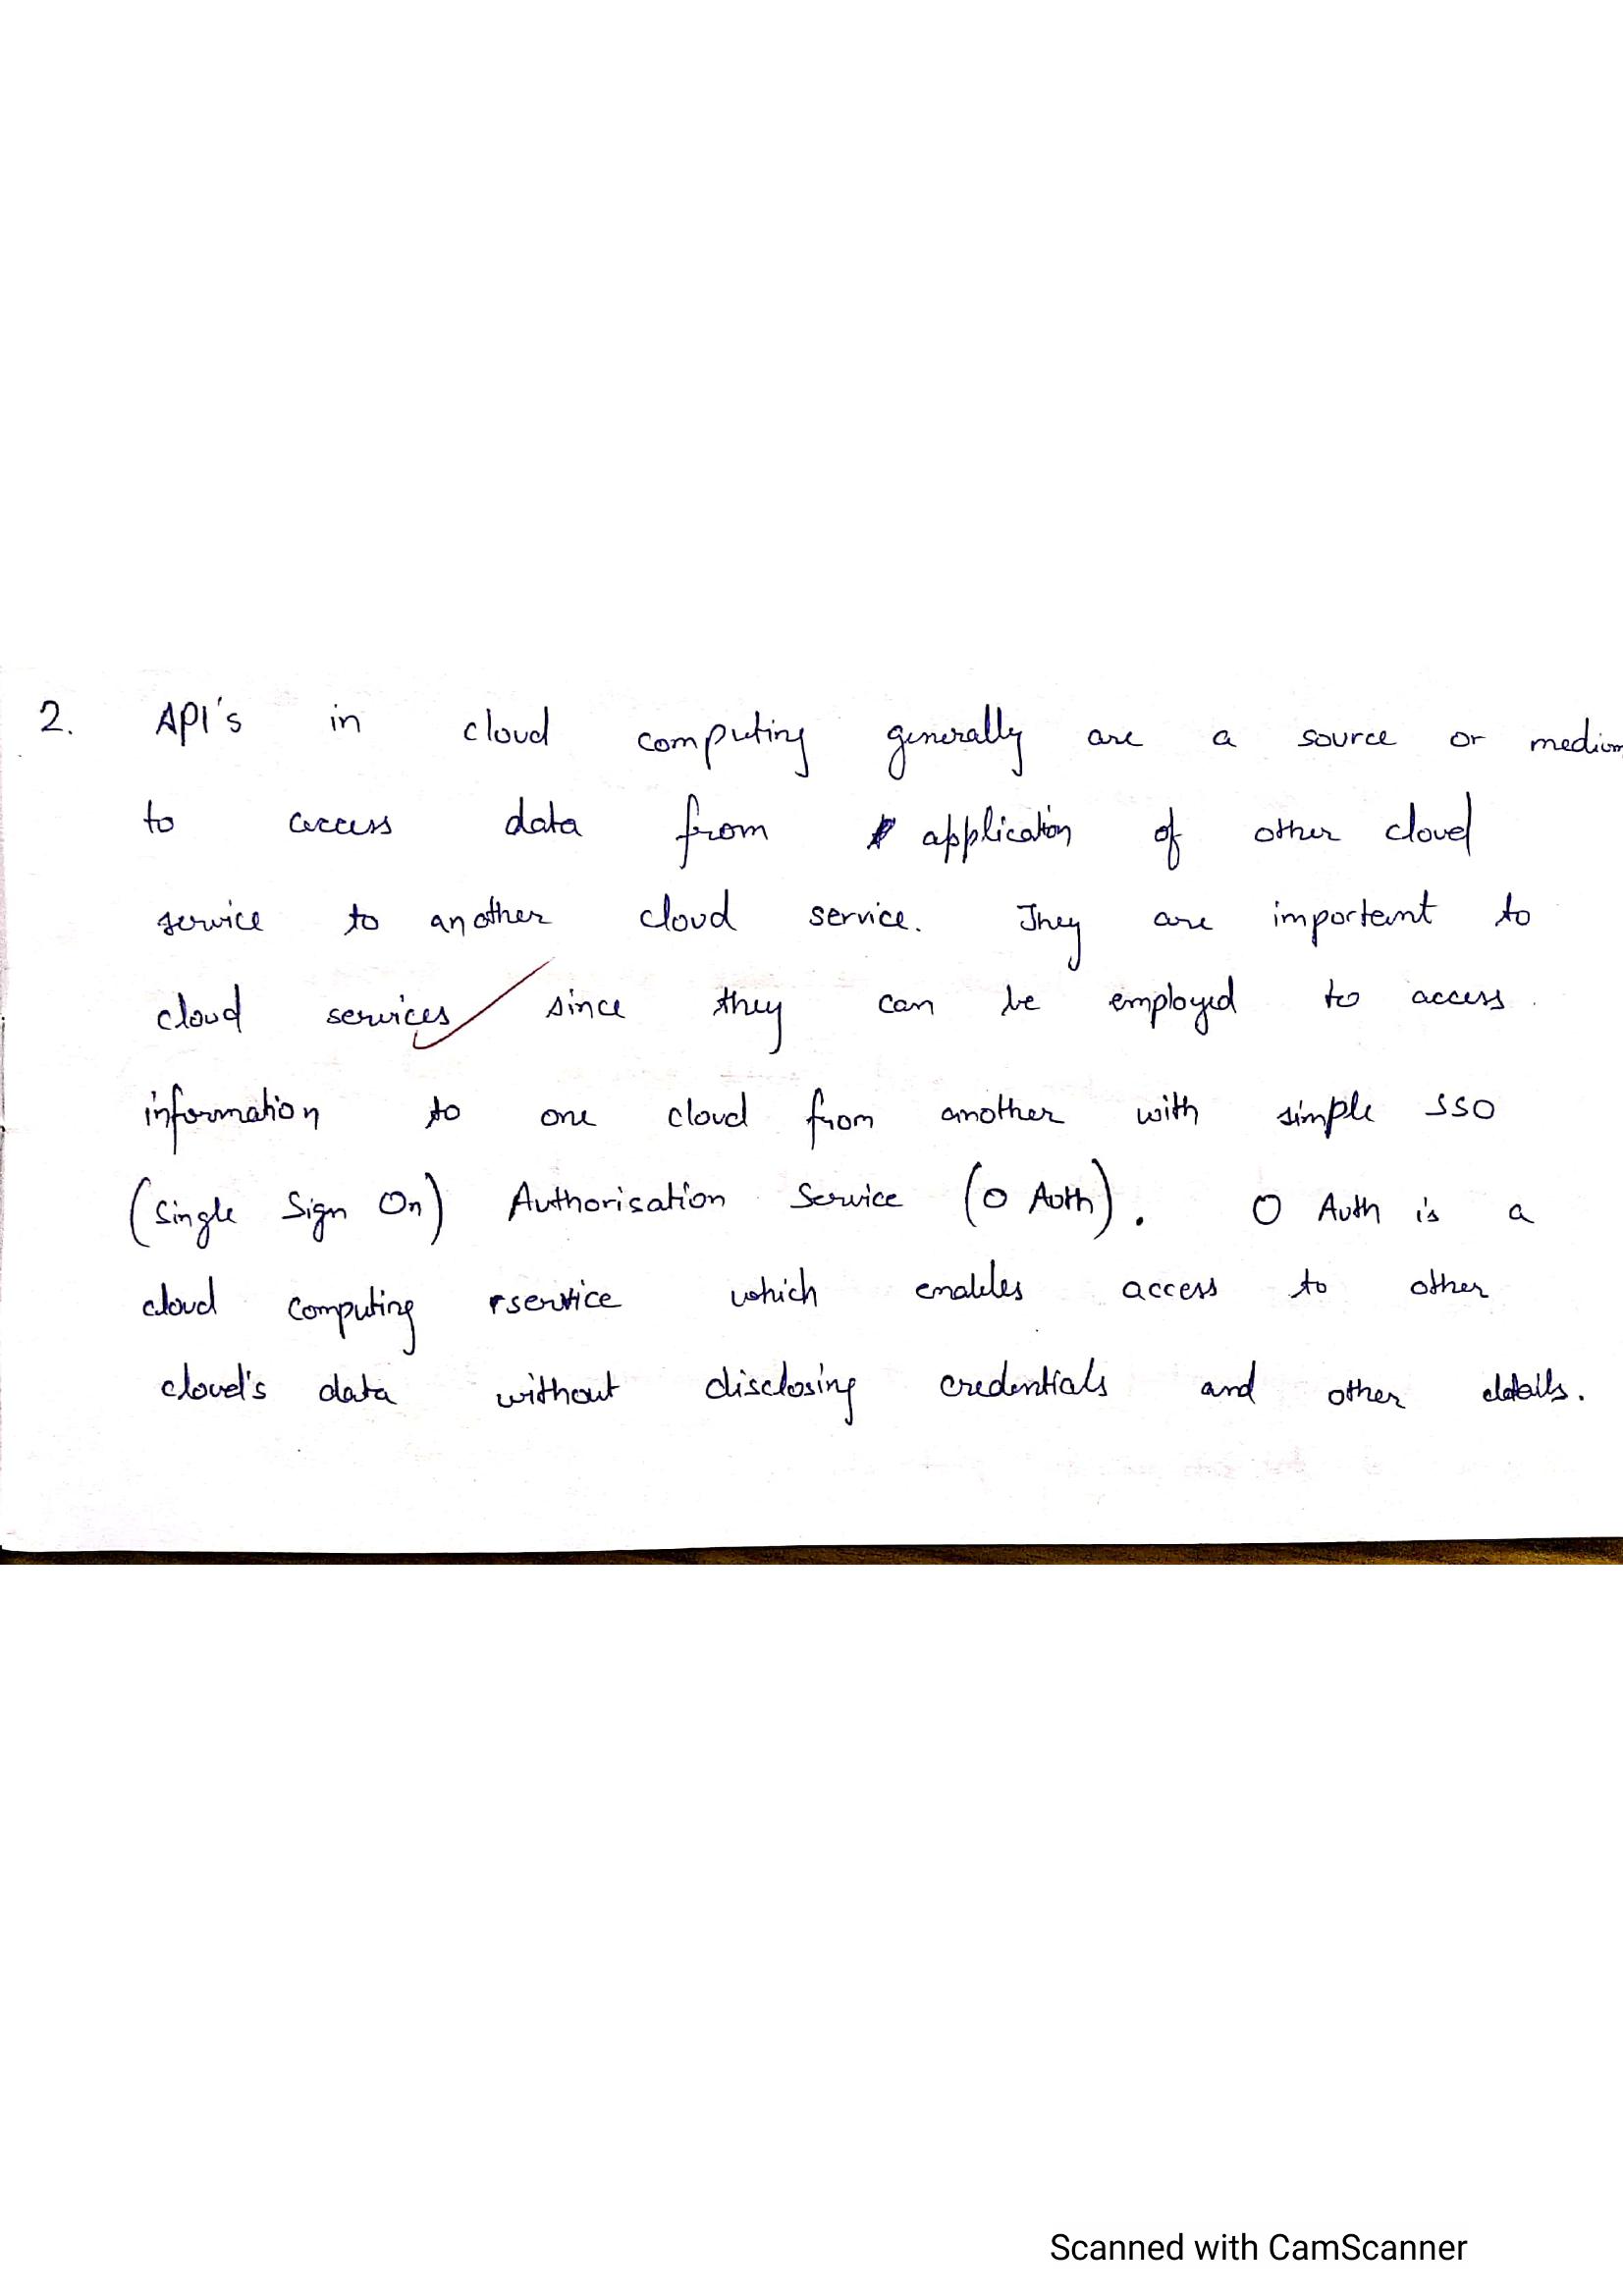 2. API's in cloud computing generally are a source or medium
to access data from application of other cloud
service to another cloud service. They are important to
cloud services since they can be employed to access
information to one cloud from another with simple SSO
(Single Sign On) Authorisation Service (O Auth). O Auth is a
cloud computing service which enables access to other
cloud's data without disclosing credentials and other details.
Scanned with CamScanner